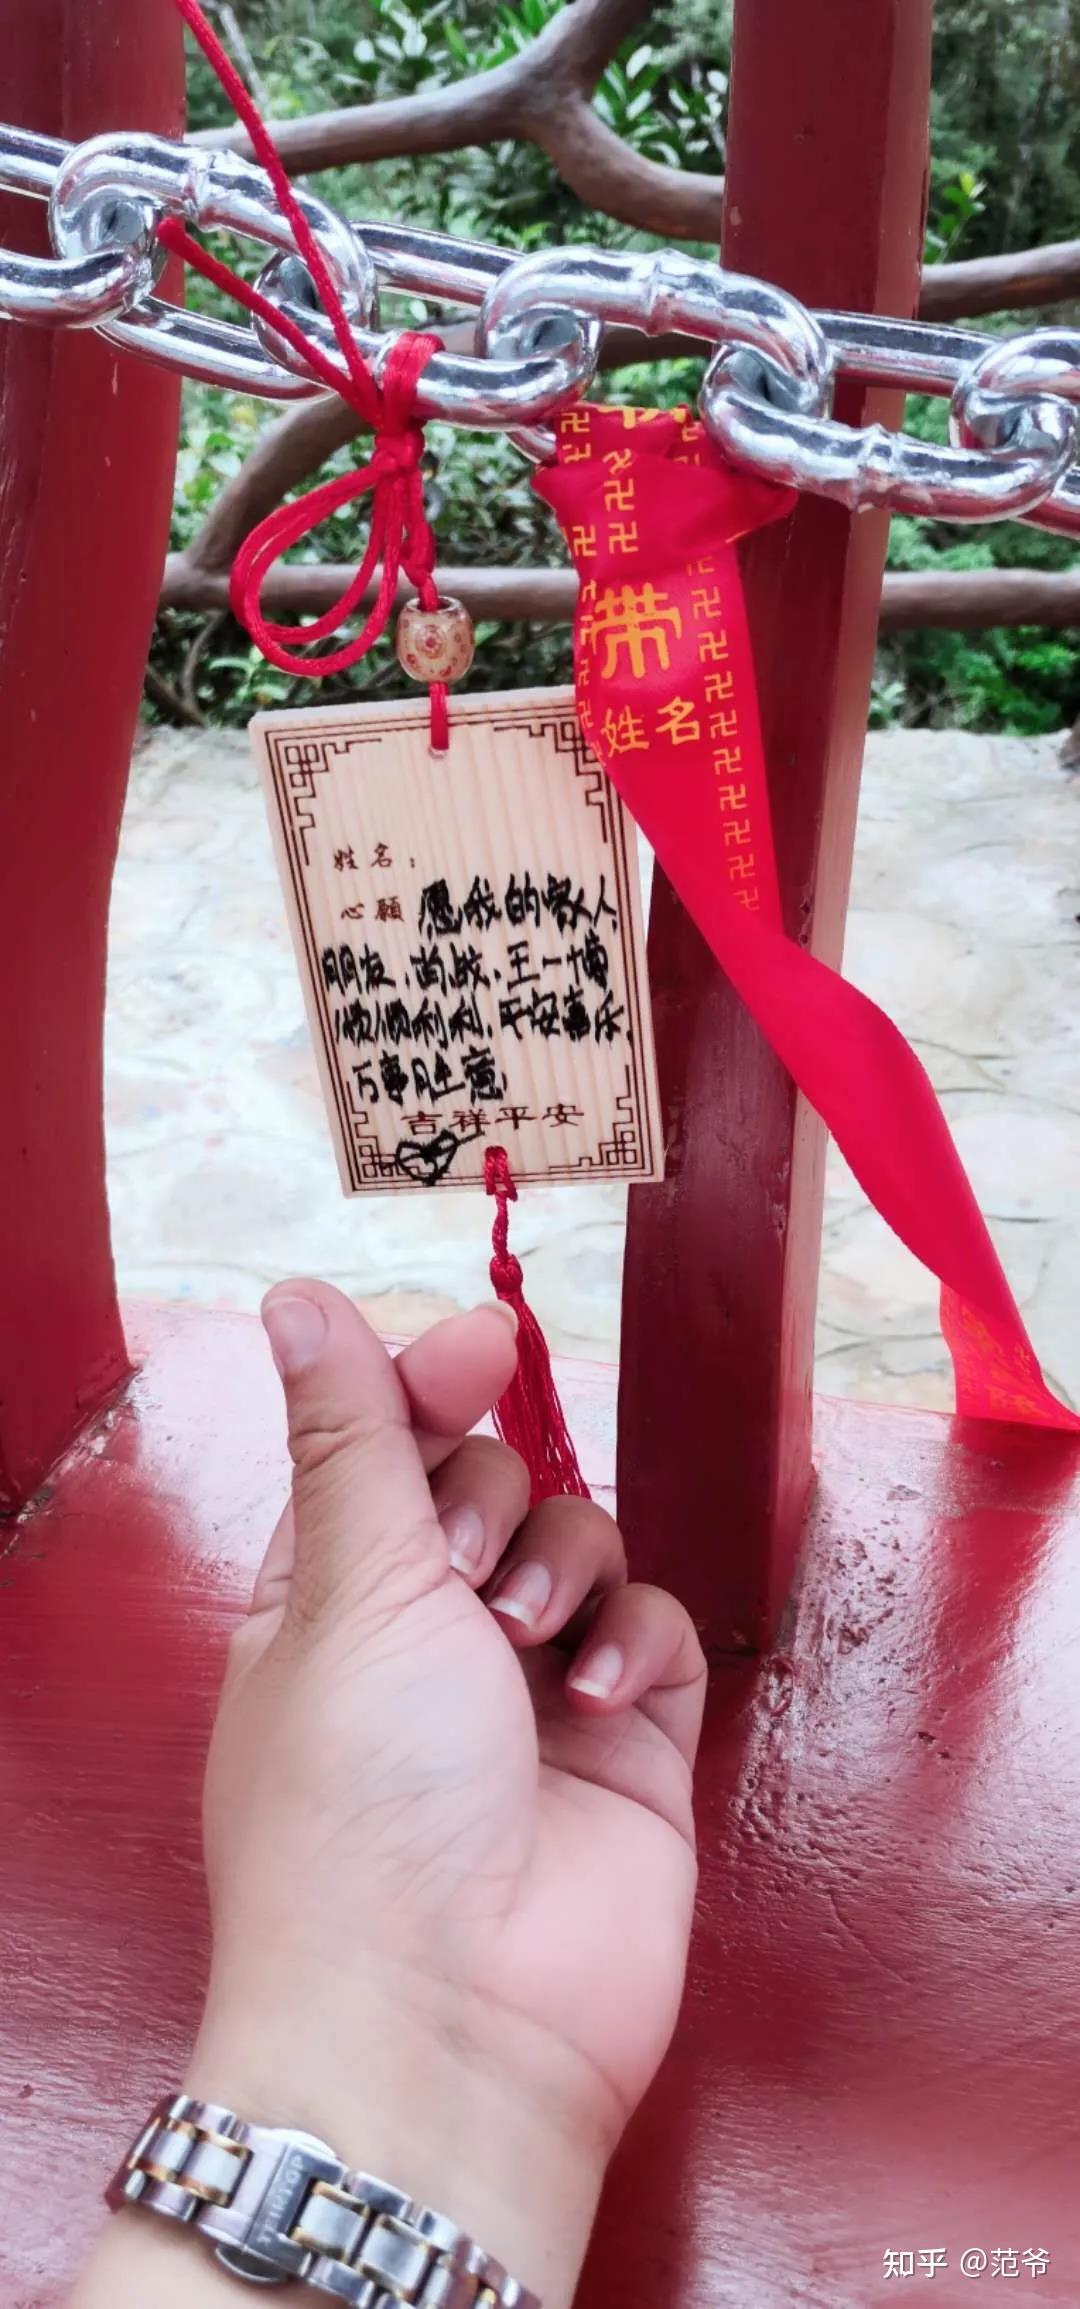 带
姓名
姓名：
心願 愿我的家人
朋友、肖战、王一博
顺顺利利、平安喜乐
万事胜意
吉祥平安
知乎 @范爷